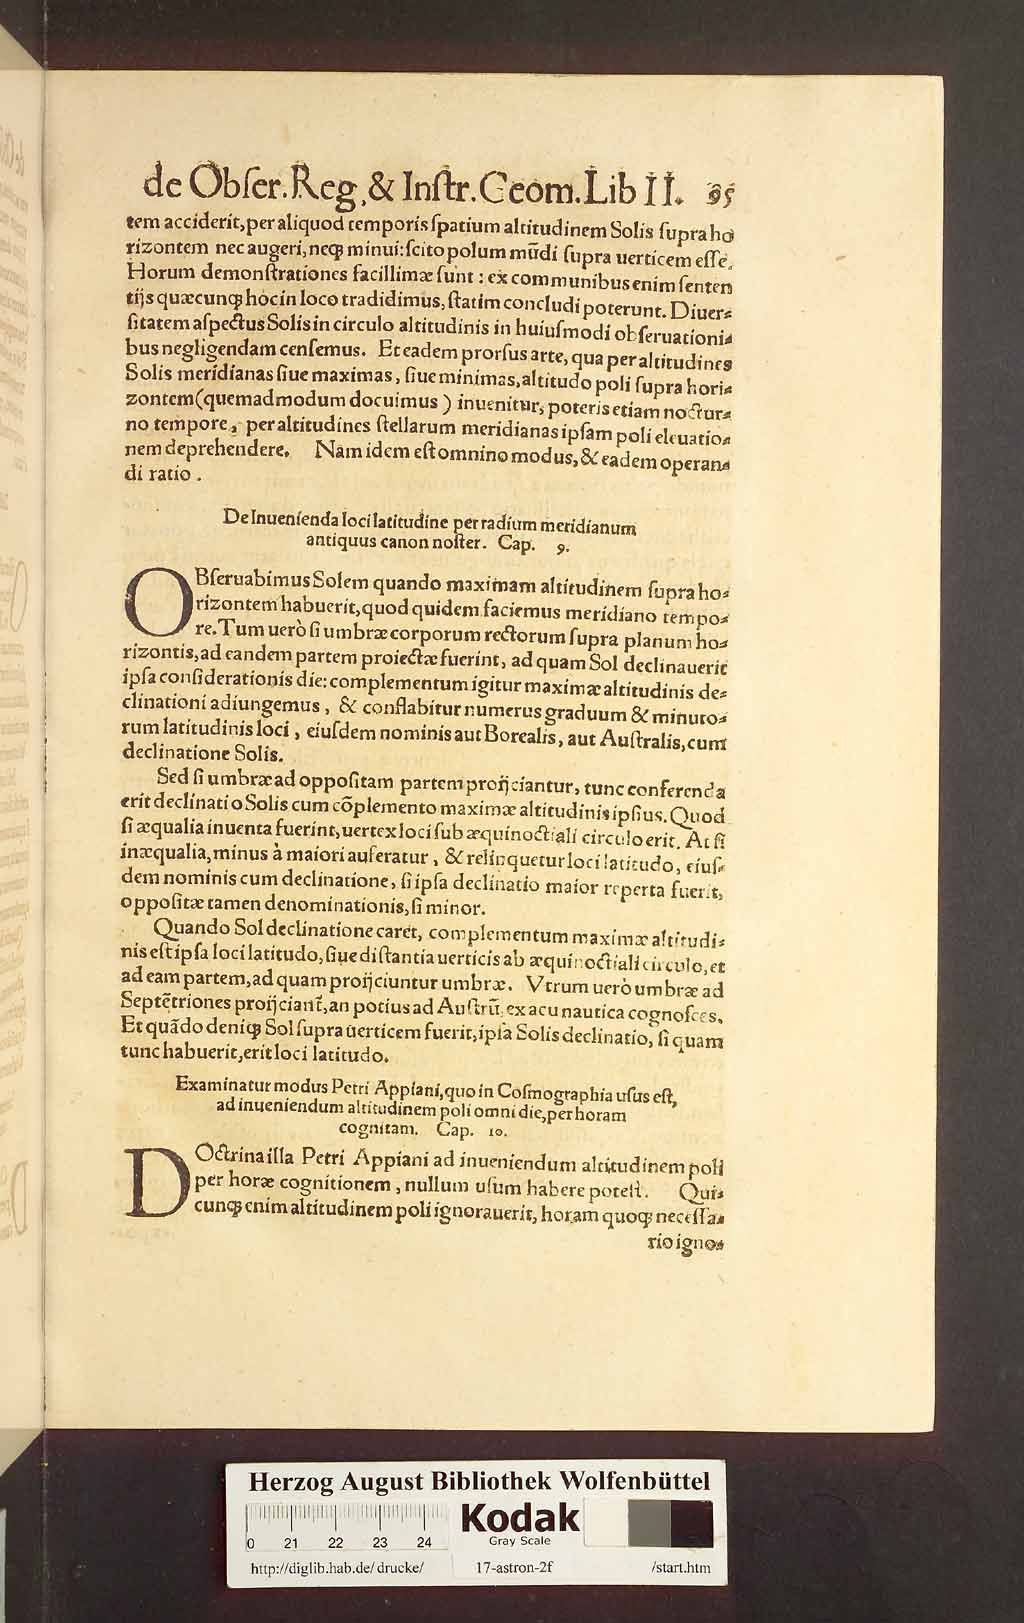 de Obſer. Reg. & Inſtr. Geom. Lib II. 95
tem acciderit, per aliquod temporis ſpatium altitudinem Solis ſupra ho
rizontem nec augeri, neqꝫ minui: ſcito polum mūdi ſupra uerticem eſſe.
Horum demonſtrationes facillimæ ſunt: ex communibus enim ſenten
tijs quæcunqꝫ hoc in loco tradidimus, ſtatim concludi poterunt. Diuer-
ſitatem aſpectus Solis in circulo altitudinis in huiuſmodi obſeruationi-
bus negligendam cenſemus. Et eadem prorſus arte, qua per altitudines
Solis meridianas ſiue maximas, ſiue minimas, altitudo poli ſupra hori-
zontem (quemadmodum docuimus) inuenitur, poteris etiam noctur-
no tempore, per altitudines ſtellarum meridianas ipſam poli eleuatio-
nem deprehendere. Nam idem eſt omnino modus, & eadem operan-
di ratio.
De Inuenienda loci latitudine per radium meridianum
antiquus canon noſter. Cap. 9.
OBſeruabimus Solem quando maximam altitudinem ſupra ho-
rizontem habuerit, quod quidem faciemus meridiano tempo-
re. Tum uerò ſi umbræ corporum rectorum ſupra planum ho-
rizontis, ad eandem partem proiectæ fuerint, ad quam Sol declinauerit
ipſa conſiderationis die: complementum igitur maximæ altitudinis de-
clinationi adiungemus, & conflabitur numerus graduum & minuto-
rum latitudinis loci, eiuſdem nominis aut Borealis, aut Auſtralis, cum
declinatione Solis.
Sed ſi umbræ ad oppoſitam partem proijciantur, tunc conferenda
erit declinatio Solis cum cōplemento maximæ altitudinis ipſius. Quod
ſi æqualia inuenta fuerint, uertex loci ſub æquinoctiali circulo erit. At ſi
inæqualia, minus à maiori auferatur, & relinquetur loci latitudo, eiuſ-
dem nominis cum declinatione, ſi ipſa declinatio maior reperta fuerit,
oppoſitæ tamen denominationis, ſi minor.
Quando Sol declinatione caret, complementum maximæ altitudi-
nis eſt ipſa loci latitudo, ſiue diſtantia uerticis ab æquinoctiali circulo, et
ad eam partem, ad quam proijciuntur umbræ. Vtrum uerò umbræ ad
Septētriones proijciant̃, an potius ad Auſtrū, ex acu nautica cognoſces.
Et quādo deniqꝫ Sol ſupra uerticem fuerit, ipſa Solis declinatio, ſi quam
tunc habuerit, erit loci latitudo.
Examinatur modus Petri Appiani, quo in Coſmographia uſus eſt,
ad inueniendum altitudinem poli omni die, per horam
cognitam. Cap. 10.
DOctrina illa Petri Appiani ad inueniendum altitudinem poli
per horæ cognitionem, nullum uſum habere poteſt. Qui-
cunqꝫ enim altitudinem poli ignorauerit, horam quoqꝫ neceſſa-
rio igno-
Herzog August Bibliothek Wolfenbüttel
0 21 22 23 24
Kodak
Gray Scale
http://diglib.hab.de/drucke/ 17-astron-2f /start.htm